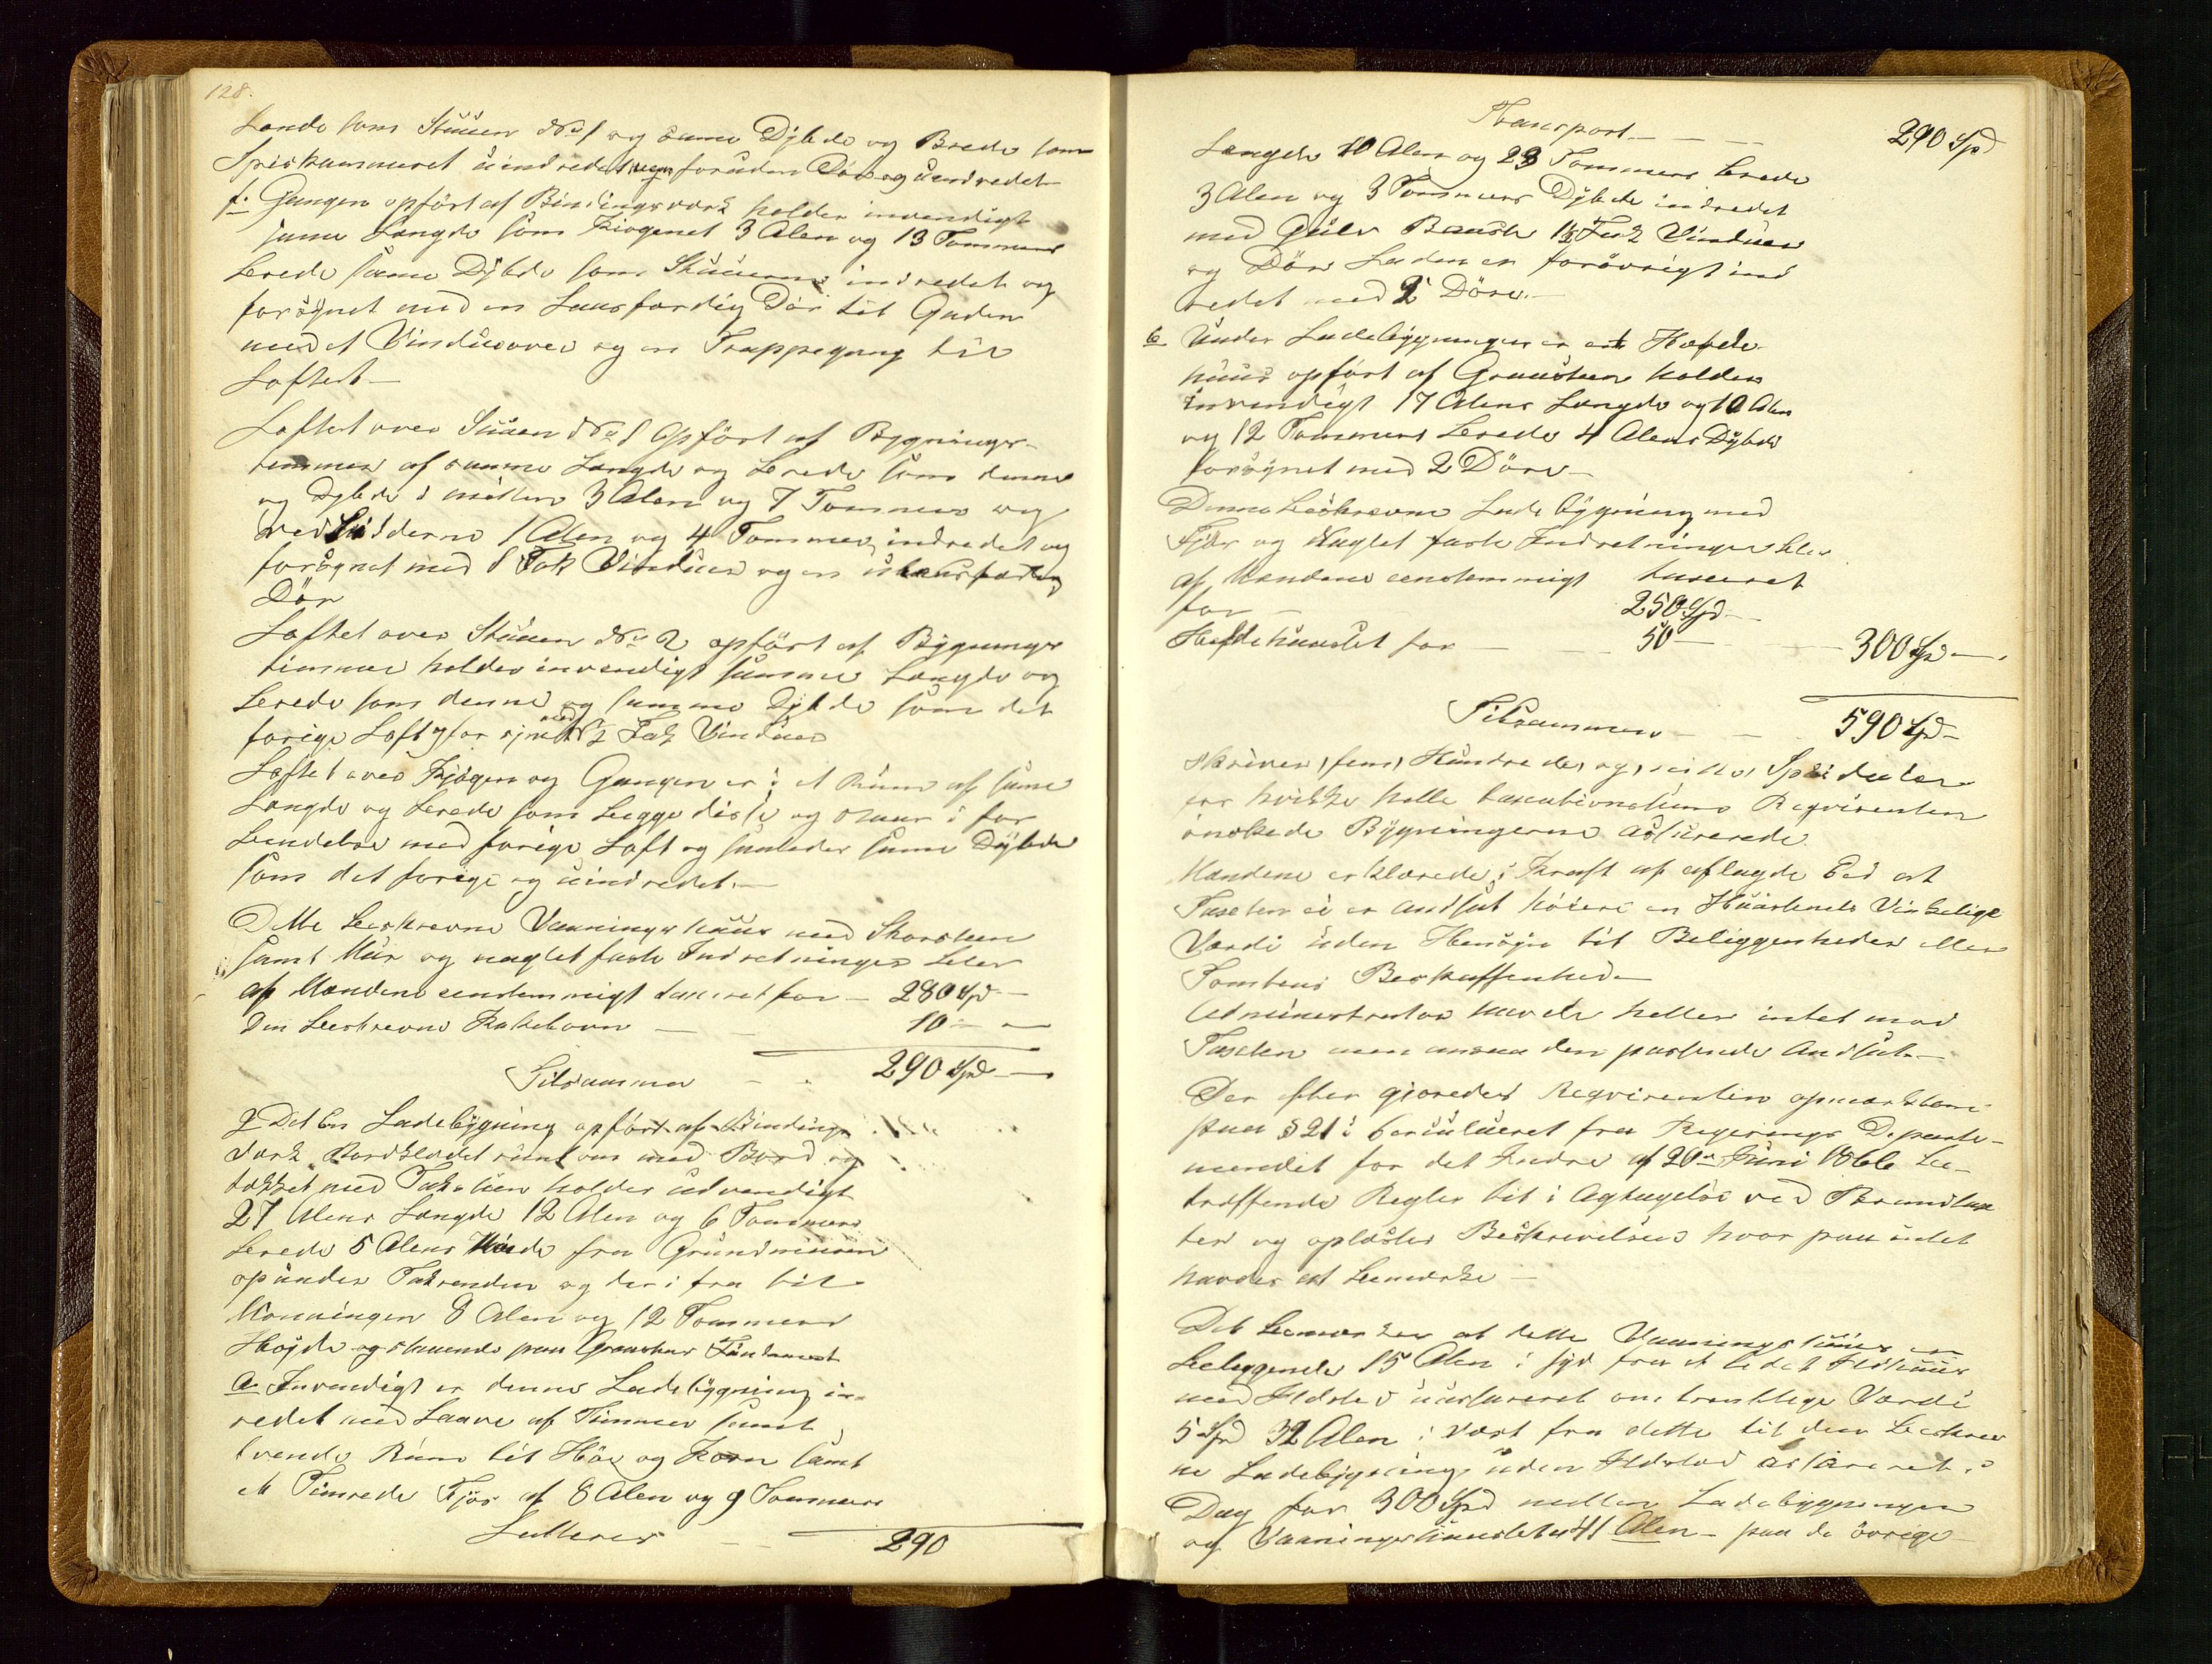 128.
Længde som Stuen No 1 og samme Dÿbde og Brede som
Spiskammeret uindredet foruden Dør og uindredet
f. Gangen opført af Bindingsværk holder invendigt
samme Længde som Kiøgenet 3 Alen og 13 Tommers
Brede samme Dÿbde som Stuerne indredet og
forsÿnet med en Laasfærdig Dør til Gaden
med et Vindu over og en Trappegang til
Loftet –
Loftet over Stuen No 1 Opført af Bygnings-
tømmer af samme Længde og Brede som denne
og Dybde i midten 3 Alen og 7 Tommer og
ved Siderne 1 Alen og 4 Tommer, indredet og
forsynet med 1 Fak Vinduer og en ulaasfærdig
Dør
Loftet over Stuen No 2 opført af Bÿgnings
tømmer holder invendigt samme Længde og
Brede som denne og samme Dÿbde som det
forige Loft forsynet med ½ Fak Vinduer
Loftet over Kjøgen og Gangen er i et Rum af same
Længde og Brede som begge disse og staar i for
bindelse med forige Loft og saaledes same Dÿbde
som det forige og uindredet. –
Dette beskrevne Vaaningshuus med Skorsteen
samt Muur og naglet faste Indretninger blev
af Mændene eenstemmigt taxeret for – 280 Spd –
Den beskrevne Bakerovn – 10 – –
Tilsammen – – 290 Spd –
2 Det En Ladebÿgning opført af Bindings
værk Bordklædet rundt om med Bord og
tækket med Taksteen holder udvendigt
27 Alens Længde 12 Alen og 6 Tommers
Brede 5 Alens Høide fra Grundmuren
op under Takrenden og der i fra til
Mønningen 8 Alen og 12 Tommers
Høÿde og staaende paa Graasteens Fundament
a. Invendigt er denne Ladebÿgning in-
redet med Laave af Tømmer samt
tvende Rum til Høe og Korn samt
et Tømrede Fjøs af 8 Alen og 9 Tommers
Latteres – – 290
Transport – – – 290 Spd
Længde 10 Alen og 23 Tommers Brede
3 Alen og 3 Tommers Dÿbde indredet
med Gulv Baase 1½ Fak Vinduer
og Døre Laden er forøvrigt ind
redet med 2 Døre. –
b Under Ladebÿgningen er et Høfde-
huus opført af Graasteen holder
invendigt 17 Alens Længde og 10 Alen
og 12 Tommers Brede 4 Alens Dÿbde
forsÿnet med 2 Døre –
Denne beskrevne Ladebÿgning med
Fjøs og Naglet faste Indretninger blev
af Mændene eenstemmigt taxeret
for – 250 Spd –
Høfdehuuset for – – – 50 – – 300 Spd – .
Tilsammen – – 590 Spd –
skriver, fem, Hundrede, og, nitti, Speciedaler
for hvilke hele taxationssum Reqvirenten
ønskede Bÿgningerne assurerede.
Mændene erklærede i Kraft af aflagde Eed at
Taxten ei er andsat høiere en Huusenes Virkelige
Værdi uden Hensÿn til Beliggenheden eller
Tomtens Beskaffenhed –
Administrator havde heller intet mod
Taxten men ansaa den passende Andsat –
Der efter gjøredes Reqvirenten opmærksom
paa § 21 i Cirkulæret fra Regjerings Departe-
mendet for det Indre af 20de Juni 1866 be-
træffende Regler til i Agtagelse ved Brandtax
ter og oplæstes Beskrivelsen hvor paa intet
havdes at bemærke –
Det bemærkes at dette Vaaningshuus er
beliggende 15 Alen i sÿd fra et lidet Ildhuus
med Ildsted uassureret omtrentlige Værdi
5 Spd 32 Alen i væst fra dette til den beskrev
ne Ladebÿgning, uden Ildsted assureret i
Dag for 300 Spd mellem Ladebÿgningen
og Vaaningshuuset er 41 Alen – paa de øvrige